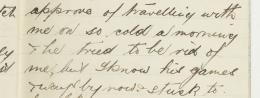 approve of travelling with
me on so cold a morning
& he tried to be rid of
me, but I know his games
by now & stuck to